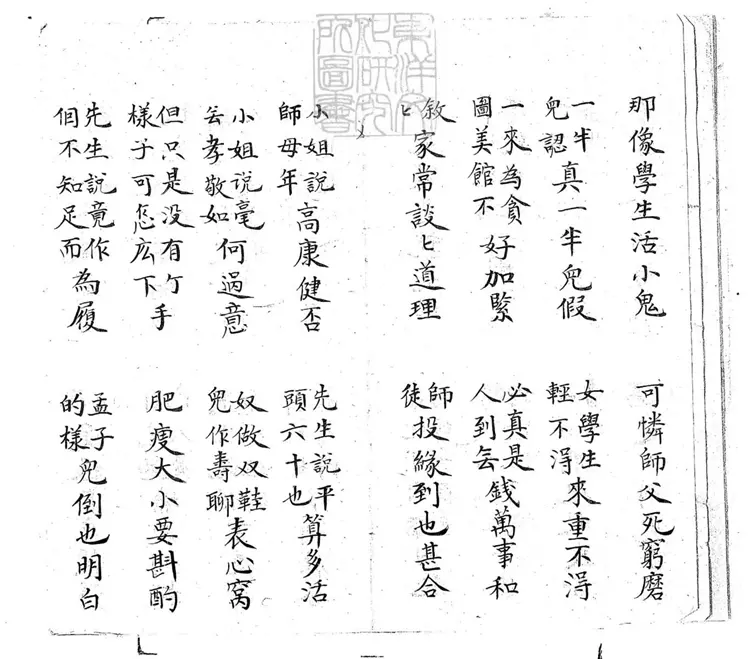 東洋文化研究所圖書
那像學生活小鬼 可憐師父死窮磨
一半兒認真一半兒假 女學生輕不得來重不得
一來為貪圖美館不好加緊 必真是人到無錢萬事和
敘ヒ家常談ヒ道理 師徒投緣到也甚合
小姐說師母年高康健否 先生說平頭六十也算多活
小姐说毫無孝敬如何過意 奴做双鞋兒作壽聊表心窩
但只是没有亇樣子可怎庅下手 肥瘦大小要斟酌
先生說竟作個不知足而為履 孟子的樣兒倒也明白